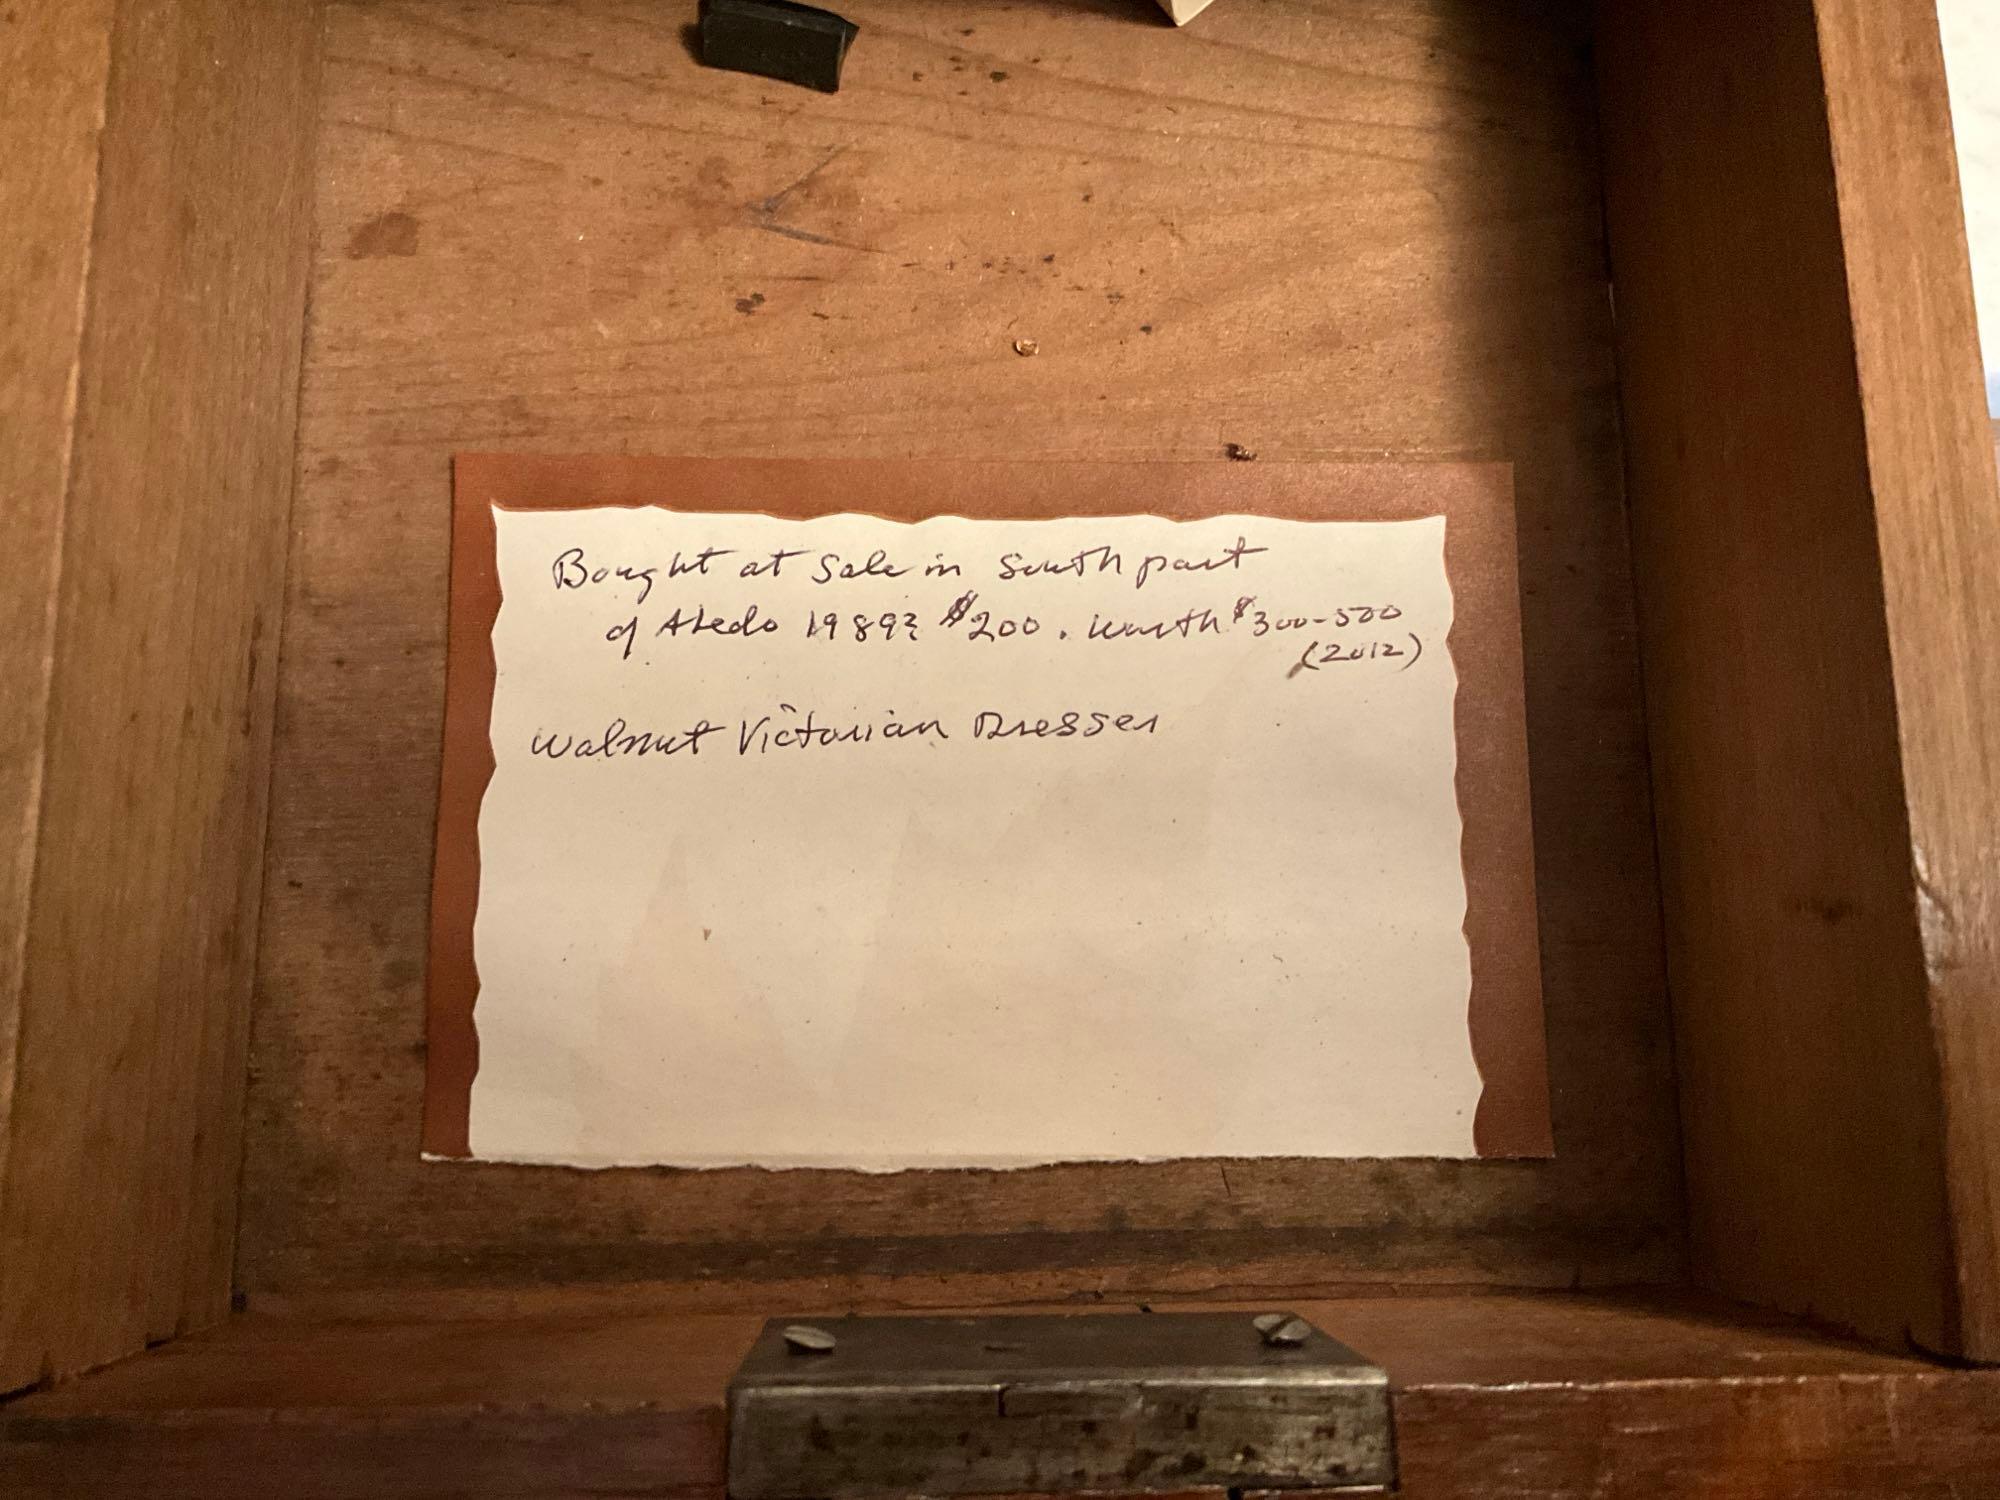 Bought at Sale in South part
of Aledo 1989? $200. Worth $300-500
(2012)
Walnut Victorian Dresser